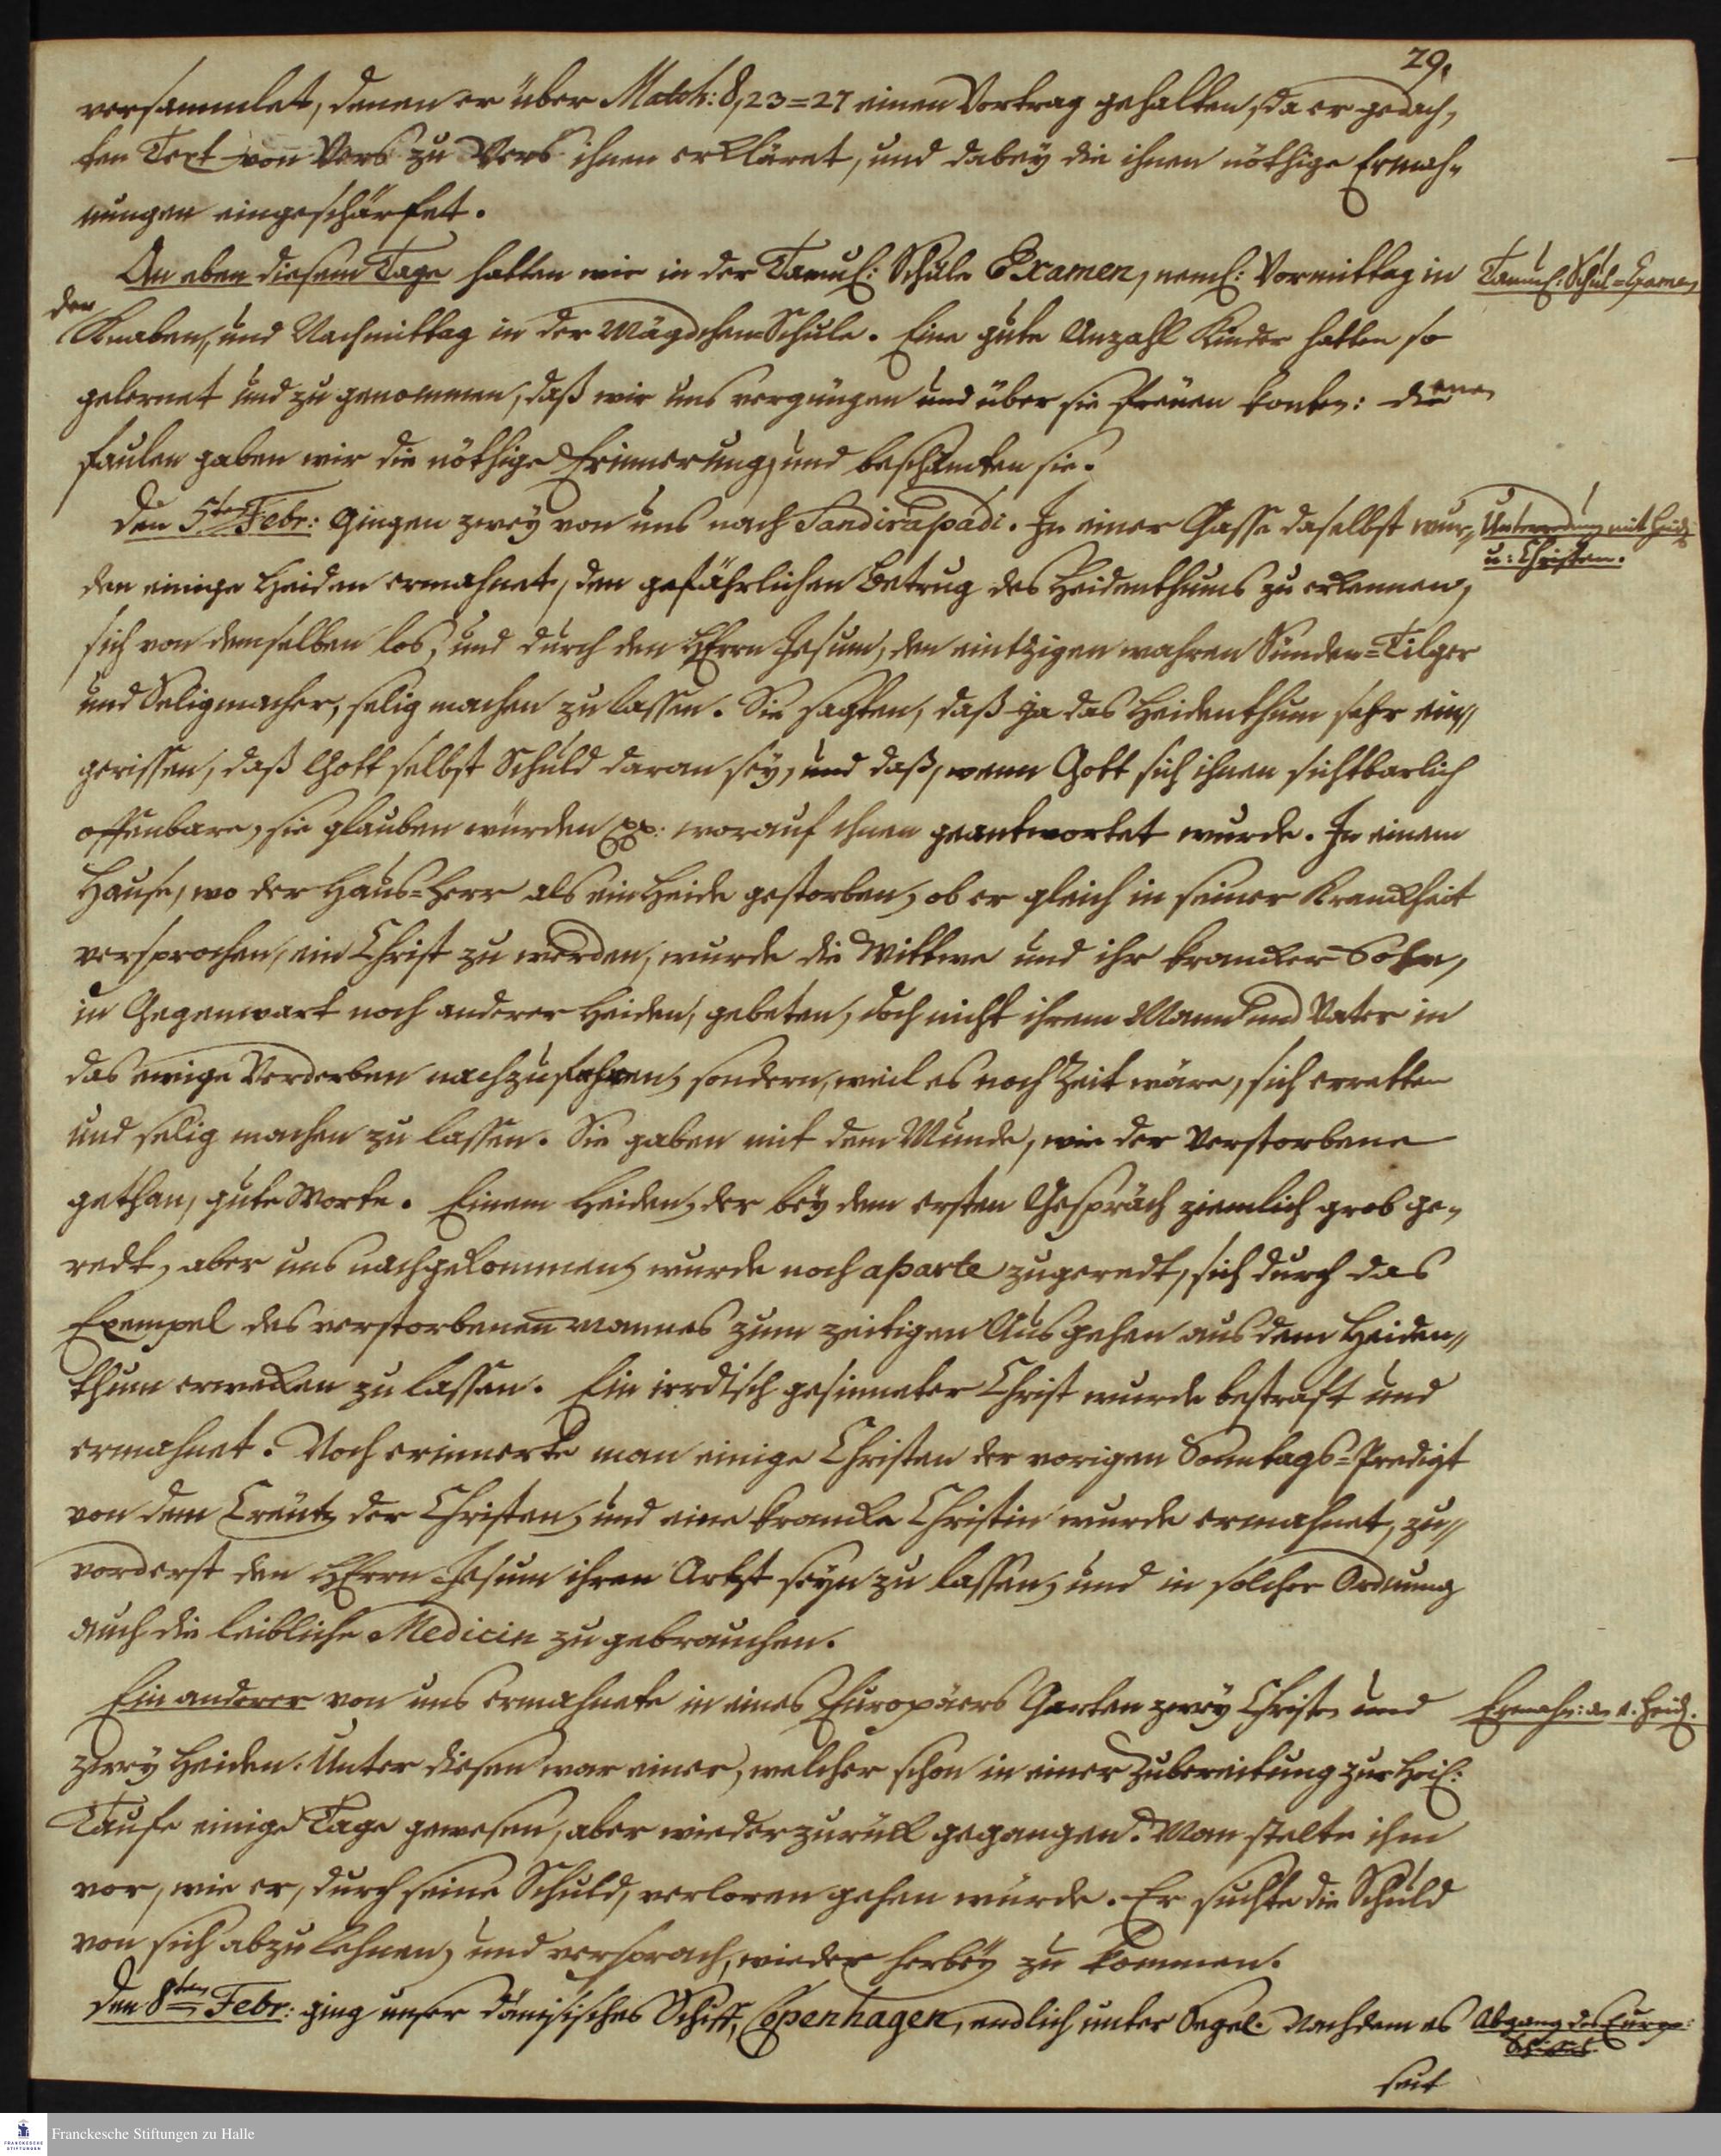 29.
versammlet, denen er über Matth: 8, 23=27 einen Vortrag gehalten, da er gedach-
ten Text von Vers zu Vers ihnen erkläret, und dabeÿ die ihnen nöthige Ermah-
nungen eingeschärfet.
An eben diesem Tage hatten wir in der Tamul: Schule Examen, neml: Vormittag in
Tamul: Schul=Examen
der
Knaben, und Nachmittag in der Mägdchen Schule. Eine gute Anzahl Kinder hatten so
gelernet und zu genommen, daß wir uns vergnügen und über sie freuen konten: denen
faulen gaben wir die nöthige Erinnerung, und beschämten sie.
Den 5ten Febr: gingen zweÿ von uns nach Sandirapadi. In einer Gasse daselbst wur-
Unterredung mit Heid:
u: Christen.
den einige Heiden ermahnet, den gefährlichen Betrug des Heidenthums zu erkennen,
sich von demselben los, und durch den HErrn Jesum, den eintzigen wahren Sünden=Tilger
und Seligmacher, selig machen zu lassen. Sie sagten, daß ja das Heidenthum sehr ein-
gerissen, daß Gott selbst Schuld daran seÿ, und daß, wenn Gott sich ihnen sichtbarlich
offenbare, sie glauben würden pp: worauf ihnen geantwortet wurde. In einem
Hause, wo der Haus=Herr als ein Heide gestorben, ob er gleich in seiner Kranckheit
versprochen, ein Christ zu werden, wurde die Wittwe und ihr krancker Sohn,
in Gegenwart noch anderer Heiden, gebeten, doch nicht ihrem Mann und Vater in
das ewige Verderben nachzufahren, sondern, weil es noch Zeit wäre, sich erretten
und selig machen zu lassen. Sie gaben mit dem Munde, wie der Verstorbene
gethan, gute Worte. Einem Heiden, der beÿ dem ersten Gespräch ziemlich grob ge-
redt, aber uns nachgekommen, wurde noch aparte zugeredt, sich durch das
Exempel des verstorbenen Mannes zum zeitigen Ausgehen aus dem Heiden-
thum erwecken zu lassen. Ein irrdisch gesinneter Christ wurde bestraft und
ermahnet. Noch erinnerte man einige Christen der vorigen Sonntags=Predigt
von dem Creutz der Christen, und eine krancke Christin wurde ermahnet, zu-
vorderst den HErrn Jesum ihren Artzt seÿn zu lassen, und in solcher Ordnung
auch die leibliche Medicin zu gebrauchen.
Ein anderer von uns ermahnete in eines Europäers Garten zweÿ Christen und
Ermahn: an e. Heid:
zweÿ Heiden. Unter diesen war einer, welcher schon in einer Zubereitung zur Heil:
Taufe einige Tage gewesen, aber wieder zurück gegangen. Man stelte ihm
vor, wie er, durch seine Schuld, verloren gehen würde. Er suchte die Schuld
von sich abzulehnen, und versprach, wieder herbeÿ zu kommen.
Den 8ten Febr: ging unser dänisches Schiff, Copenhagen, endlich unter Segel. Nachdem es
Abgang des Europ:
Schiffes
seit
Franckesche Stiftungen zu Halle